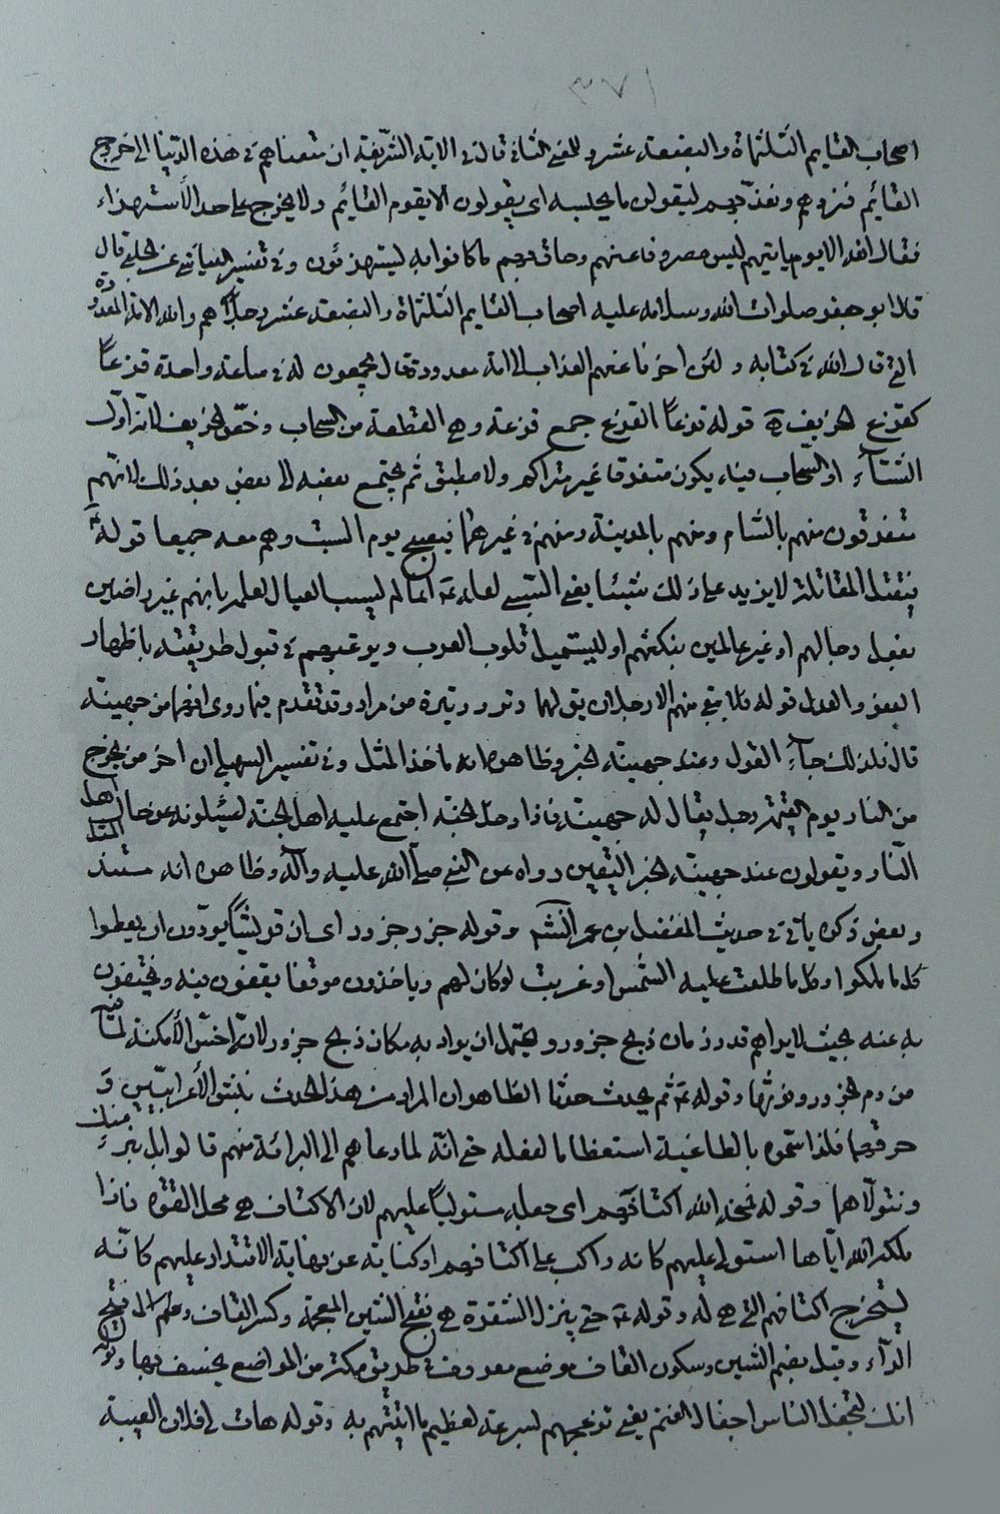 ٣٧١
اصحاب القايم الثلثماة والبضعة عشر والمعنى الثاني قال في الاية الشريفة ان متعناهم في هذه الدنيا الى خروج
القائم فنردهم ونعذبهم ليقولن ما يحبسه اى يقولون الا يقوم القائم ولا يخرج على حد الاستهزاء
فقال الله الا يوم ياتيهم ليس مصروفا عنهم وحاق بهم ما كانوا به يستهزئون وفي تفسير العياشي عن الحلبي قال
قال ابو جعفر صلوات الله وسلامه عليه اصحاب القايم الثلثماة والبضعة عشر رجلا هم والله الامة المعدودة
التي قال الله في كتابه ولئن اخرنا عنهم العذاب الى امة معدودة قال يجمعون له في ساعة واحدة قزعاً
كقزع الخريف قوله قزعاً القزع جمع قزعة وهي القطعة من السحاب وخص الخريف لانه اول
الشتاء او السحاب فيه يكون متفرقا غير متراكم ولا مطبق ثم يجتمع بعضه الى بعض بعد ذلك لانهم
متفرقون منهم بالشام ومنهم بالمدينة ومنهم في غيرهما فيصبح يوم السبت وهم معه جميعا قوله
فيقتل المقاتلة لا يزيد على ذلك شيئا يعنى السبي لعله انما لم يسب العيال لعلمه بانهم غير راضين
بفعل رجالهم او غير عالمين بنكثهم او ليستميل قلوب العرب ويرغبهم في قبول طريقته باظهار
العفو والعدل قوله فلا يبقى منهم الا رجلان يق لهما وتر ووتيرة من مراد وقد تقدم فيما روى انهما من جهينة
قال فلذلك جاء القول وعند جهينة الخبر وظاهره انه ماخذ المثل وفي تفسير السهيلي ان اخر من يخرج
من النار يوم القيمة رجل يقال له جهينة فاذا دخل الجنة اجتمع عليه اهل الجنة يسئلونه عن حال اهل
النار ويقولون عند جهينة الخبر اليقين رواه عن النبي صلى الله عليه وآله وظاهره انه مستند المثل
وبعض ذكره ياتي في حديث المفضل بن عمر انشم وقوله جزر جزور اى ان قريشا يودون ان يعطوا
كل ما ملكوا وكل ما طلعت عليه الشمس او غربت لو كان لهم وياخذون موقفا يقفون فيه ويختفون
به عنه بحيث لا يراهم قدر زمان ذبح جزور ويحتمل ان يراد به مكان ذبح جزور لانه اخس الامكنة لما فيه
من دم الجزور وفرثها وقوله ثم يحدث حدثا الظاهر ان المراد من هذا الحدث نبش الأعرابيين و
حرقهما فلذا سموه بالطاغية استعظاما لفعله حتى انه لما دعاهم الى البرائة منهم قالوا بل نبرء منك
ونتولاهما وقوله فيمنحه الله اكتافهم اى جعله مستولياً عليهم لان الاكتاف هي محل القوة فاذا
ملكه الله اياها استولى عليهم كانه راكب على اكتافهم او كناية عن نهاية الاقتدار عليهم كانه
يستخرج اكتافهم التي هي له وقوله حتى ينزل الشقرة هي بفتح الشين المعجمة وكسر القاف وفتح
الراء وقيل بضم الشين وسكون القاف موضع معروف في طريق مكة من المواضع يخسف فيها وقوله
انك لتجفل الناس اجفال الغنم يعنى تزعجهم لسرعة لعظيم ما اتيتهم به وقوله هات لي فلان العيبة